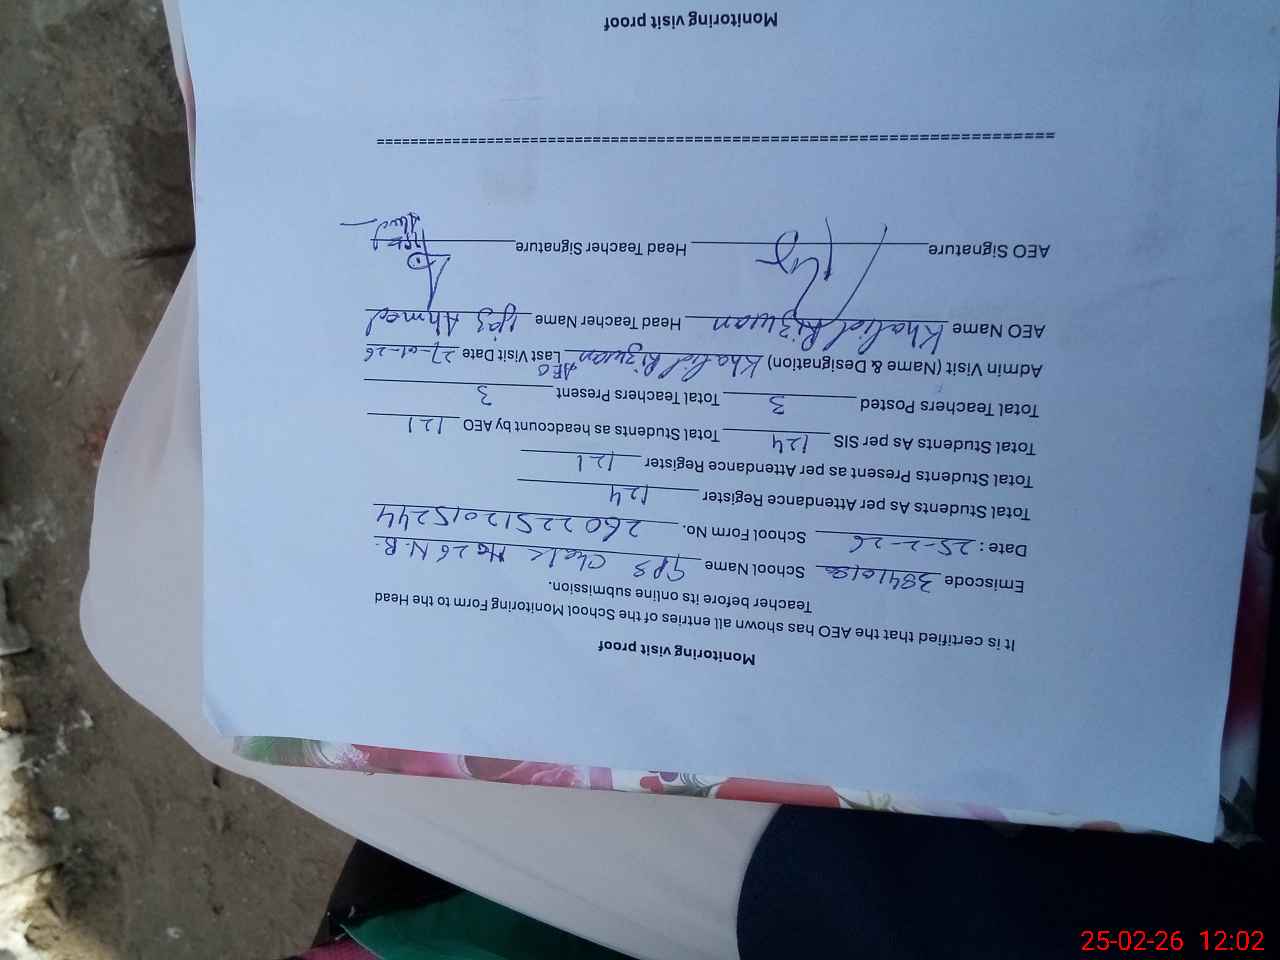 Monitoring visit proof
It is certified that the AEO has shown all entries of the School Monitoring Form to the Head
Teacher before its online submission.
Emiscode School Name GPS Chak No 26 N.B.
Date: 25-2-26 School Form No. 26022512015244
Total Students As per Attendance Register 124
Total Students Present as per Attendance Register 121
Total Students As per SIS 124 Total Students as headcount by AEO 121
Total Teachers Posted 3 Total Teachers Present 3
Admin Visit (Name & Designation) Khalid Rizwan AEO Last Visit Date 27-01-26
AEO Name Khalid Rizwan Head Teacher Name Ijaz Ahmed
AEO Signature Head Teacher Signature
================================================================================
Monitoring visit proof
25-02-26 12:02